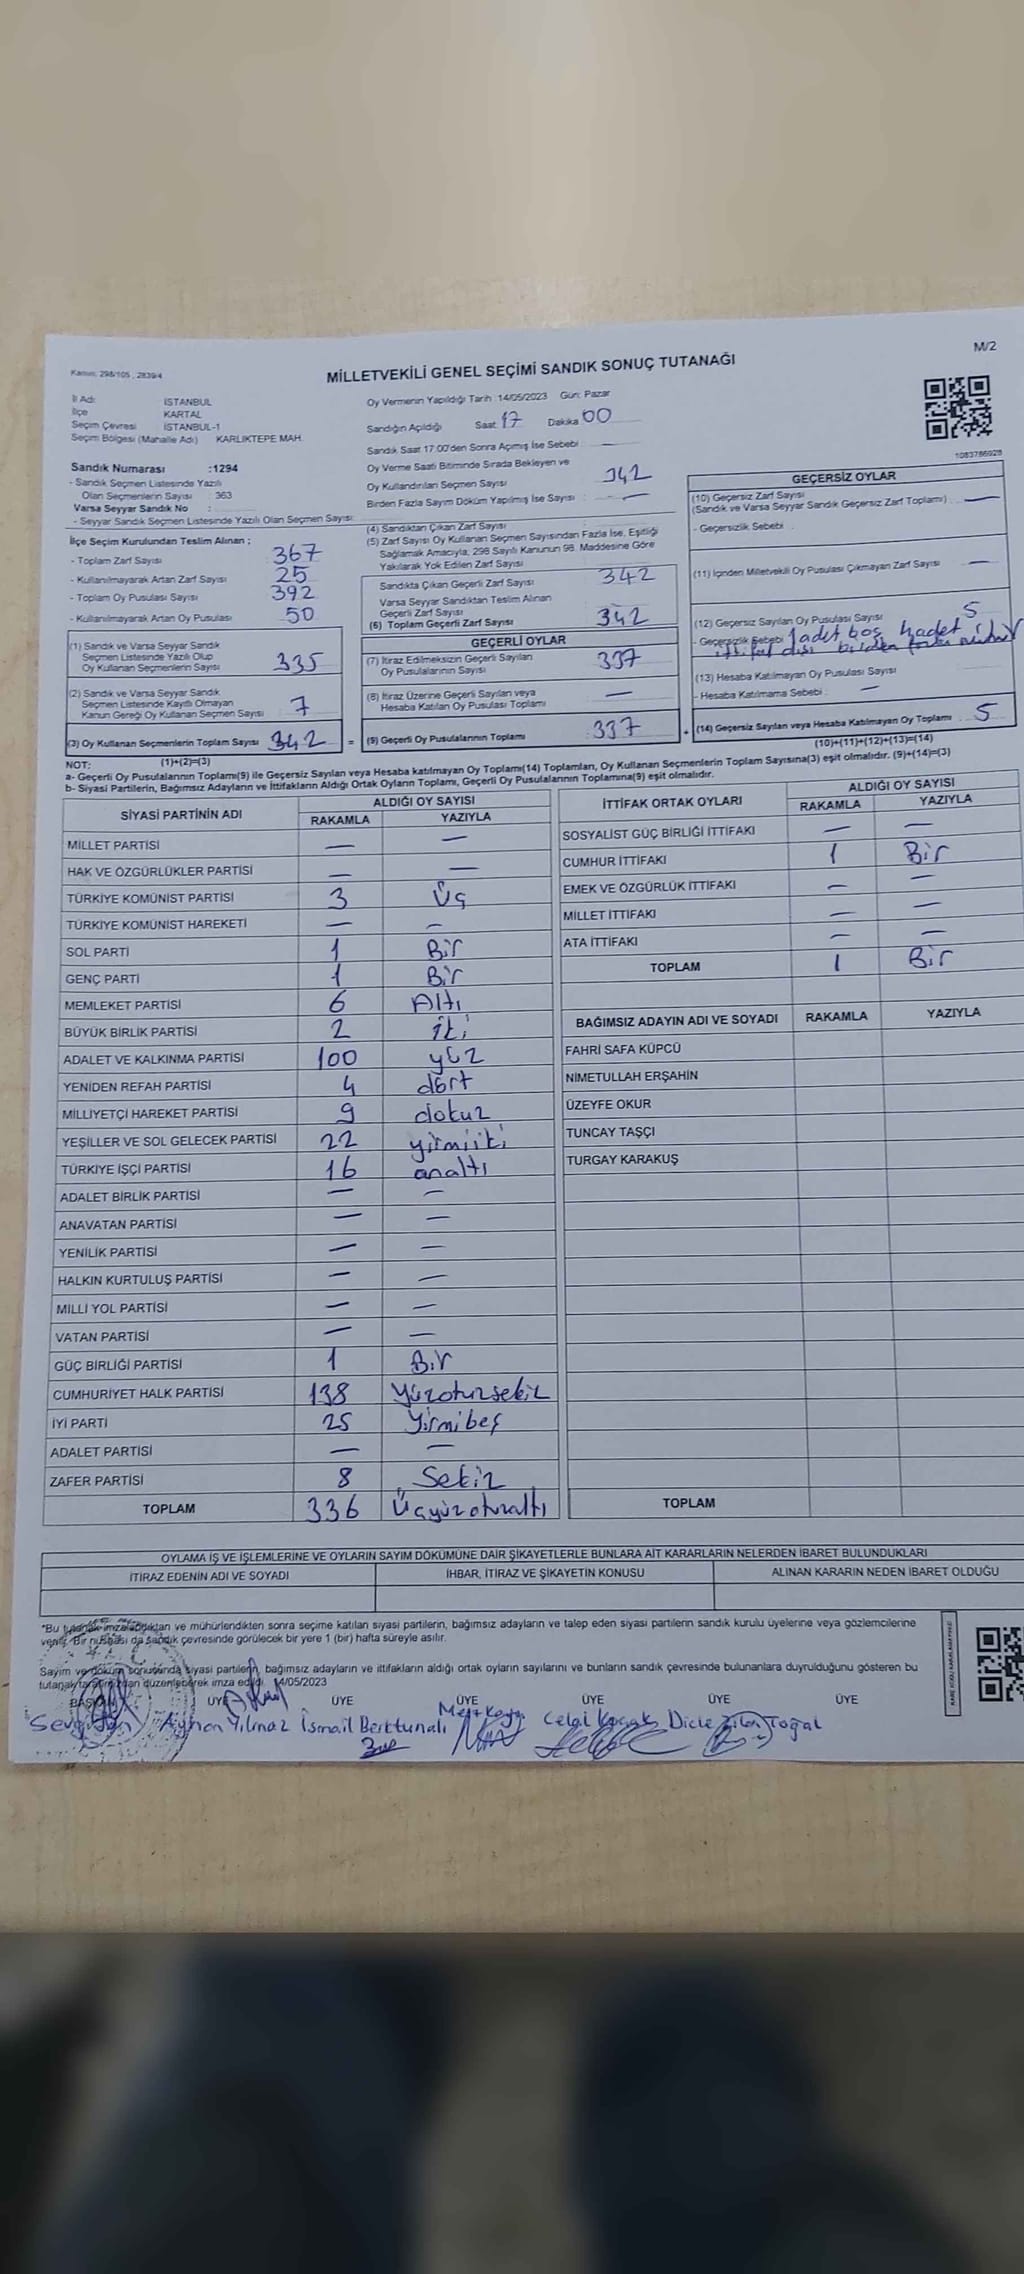 M/2
Kanun: 298/105 , 2839/4
MİLLETVEKİLİ GENEL SEÇİMİ SANDIK SONUÇ TUTANAĞI
İl Adı İSTANBUL
İlçe KARTAL
Seçim Çevresi İSTANBUL-1
Seçim Bölgesi (Mahalle Adı) KARLIKTEPE MAH.
Sandık Numarası :1294
- Sandık Seçmen Listesinde Yazılı
Olan Seçmenlerin Sayısı : 363
Varsa Seyyar Sandık No :
- Seyyar Sandık Seçmen Listesinde Yazılı Olan Seçmen Sayısı:
İlçe Seçim Kurulundan Teslim Alınan ;
- Toplam Zarf Sayısı 367
- Kullanılmayarak Artan Zarf Sayısı 25
- Toplam Oy Pusulası Sayısı 392
- Kullanılmayarak Artan Oy Pusulası 50
(1) Sandık ve Varsa Seyyar Sandık
Seçmen Listesinde Yazılı Olup
Oy Kullanan Seçmenlerin Sayısı 335
(2) Sandık ve Varsa Seyyar Sandık
Seçmen Listesinde Kayıtlı Olmayan
Kanun Gereği Oy Kullanan Seçmen Sayısı 7
(3) Oy Kullanan Seçmenlerin Toplam Sayısı 342 =
Oy Vermenin Yapıldığı Tarih :14/05/2023 Gün: Pazar
Sandığın Açıldığı Saat 17 Dakika 00
Sandık Saat 17:00'den Sonra Açımış İse Sebebi : —
Oy Verme Saati Bitiminde Sırada Bekleyen ve
Oy Kullandırılan Seçmen Sayısı 342
Birden Fazla Sayım Döküm Yapılmış İse Sayısı —
(4) Sandıktan Çıkan Zarf Sayısı
(5) Zarf Sayısı Oy Kullanan Seçmen Sayısından Fazla İse, Eşitliği
Sağlamak Amacıyla, 298 Sayılı Kanunun 98. Maddesine Göre
Yakılarak Yok Edilen Zarf Sayısı
Sandıkta Çıkan Geçerli Zarf Sayısı 342
Varsa Seyyar Sandıktan Teslim Alınan
Geçerli Zarf Sayısı
(6) Toplam Geçerli Zarf Sayısı 342
GEÇERLİ OYLAR
(7) İtiraz Edilmeksizin Geçerli Sayılan
Oy Pusulalarının Sayısı 337
(8) İtiraz Üzerine Geçerli Sayılan veya
Hesaba Katılan Oy Pusulası Toplamı —
(9) Geçerli Oy Pusulalarının Toplamı 337 +
1083786928
GEÇERSİZ OYLAR
(10) Geçersiz Zarf Sayısı
(Sandık ve Varsa Seyyar Sandık Geçersiz Zarf Toplamı) —
- Geçersizlik Sebebi :
(11) İçinden Milletvekili Oy Pusulası Çıkmayan Zarf Sayısı —
(12) Geçersiz Sayılan Oy Pusulası Sayısı 5
- Geçersizlik Sebebi 1 adet boş 4 adet
ittifak dışı birden fazla
(13) Hesaba Katılmayan Oy Pusulası Sayısı
- Hesaba Katılmama Sebebi : —
(14) Geçersiz Sayılan veya Hesaba Katılmayan Oy Toplamı 5
(1)+(2)=(3)
(10)+(11)+(12)+(13)=(14)
NOT:
a- Geçerli Oy Pusulalarının Toplamı(9) ile Geçersiz Sayılan veya Hesaba katılmayan Oy Toplamı(14) Toplamları, Oy Kullanan Seçmenlerin Toplam Sayısına(3) eşit olmalıdır. (9)+(14)=(3)
b- Siyasi Partilerin, Bağımsız Adayların ve İttifakların Aldığı Ortak Oyların Toplamı, Geçerli Oy Pusulalarının Toplamına(9) eşit olmalıdır.
SİYASİ PARTİNİN ADI ALDIĞI OY SAYISI
RAKAMLA YAZIYLA
MİLLET PARTİSİ — —
HAK VE ÖZGÜRLÜKLER PARTİSİ — —
TÜRKİYE KOMÜNİST PARTİSİ 3 Üç
TÜRKİYE KOMÜNİST HAREKETİ — —
SOL PARTİ 1 Bir
GENÇ PARTİ 1 Bir
MEMLEKET PARTİSİ 6 Altı
BÜYÜK BİRLİK PARTİSİ 2 İki
ADALET VE KALKINMA PARTİSİ 100 yüz
YENİDEN REFAH PARTİSİ 4 dört
MİLLİYETÇİ HAREKET PARTİSİ 9 dokuz
YEŞİLLER VE SOL GELECEK PARTİSİ 22 yirmiiki
TÜRKİYE İŞÇİ PARTİSİ 16 onaltı
ADALET BİRLİK PARTİSİ — —
ANAVATAN PARTİSİ — —
YENİLİK PARTİSİ — —
HALKIN KURTULUŞ PARTİSİ — —
MİLLİ YOL PARTİSİ — —
VATAN PARTİSİ — —
GÜÇ BİRLİĞİ PARTİSİ 1 Bir
CUMHURİYET HALK PARTİSİ 138 Yüzotuzsekiz
İYİ PARTİ 25 Yirmibeş
ADALET PARTİSİ — —
ZAFER PARTİSİ 8 Sekiz
TOPLAM 336 Üçyüzotuzaltı
İTTİFAK ORTAK OYLARI ALDIĞI OY SAYISI
RAKAMLA YAZIYLA
SOSYALİST GÜÇ BİRLİĞİ İTTİFAKI — —
CUMHUR İTTİFAKI 1 Bir
EMEK VE ÖZGÜRLÜK İTTİFAKI — —
MİLLET İTTİFAKI — —
ATA İTTİFAKI — —
TOPLAM 1 Bir
BAĞIMSIZ ADAYIN ADI VE SOYADI RAKAMLA YAZIYLA
FAHRİ SAFA KÜPCÜ
NİMETULLAH ERŞAHİN
ÜZEYFE OKUR
TUNCAY TAŞÇI
TURGAY KARAKUŞ
TOPLAM
OYLAMA İŞ VE İŞLEMLERİNE VE OYLARIN SAYIM DÖKÜMÜNE DAİR ŞİKAYETLERLE BUNLARA AİT KARARLARIN NELERDEN İBARET BULUNDUKLARI
İTİRAZ EDENİN ADI VE SOYADI İHBAR, İTİRAZ VE ŞİKAYETİN KONUSU ALINAN KARARIN NEDEN İBARET OLDUĞU
*Bu tutanak imzalandıktan ve mühürlendikten sonra seçime katılan siyasi partilerin, bağımsız adayların ve talep eden siyasi partilerin sandık kurulu üyelerine veya gözlemcilerine
verilir. Bir nüshası da sandık çevresinde görülecek bir yere 1 (bir) hafta süreyle asılır.
Sayım ve döküm sonucunda siyasi partilerin, bağımsız adayların ve ittifakların aldığı ortak oyların sayılarını ve bunların sandık çevresinde bulunanlara duyrulduğunu gösteren bu
tutanak tarafımızdan düzenlenerek imza edildi. 14/05/2023
BAŞKAN ÜYE ÜYE ÜYE ÜYE ÜYE ÜYE
Ayhan Yılmaz İsmail Berktunalı Mert Kaya Celal Koçak Dicle Toğal